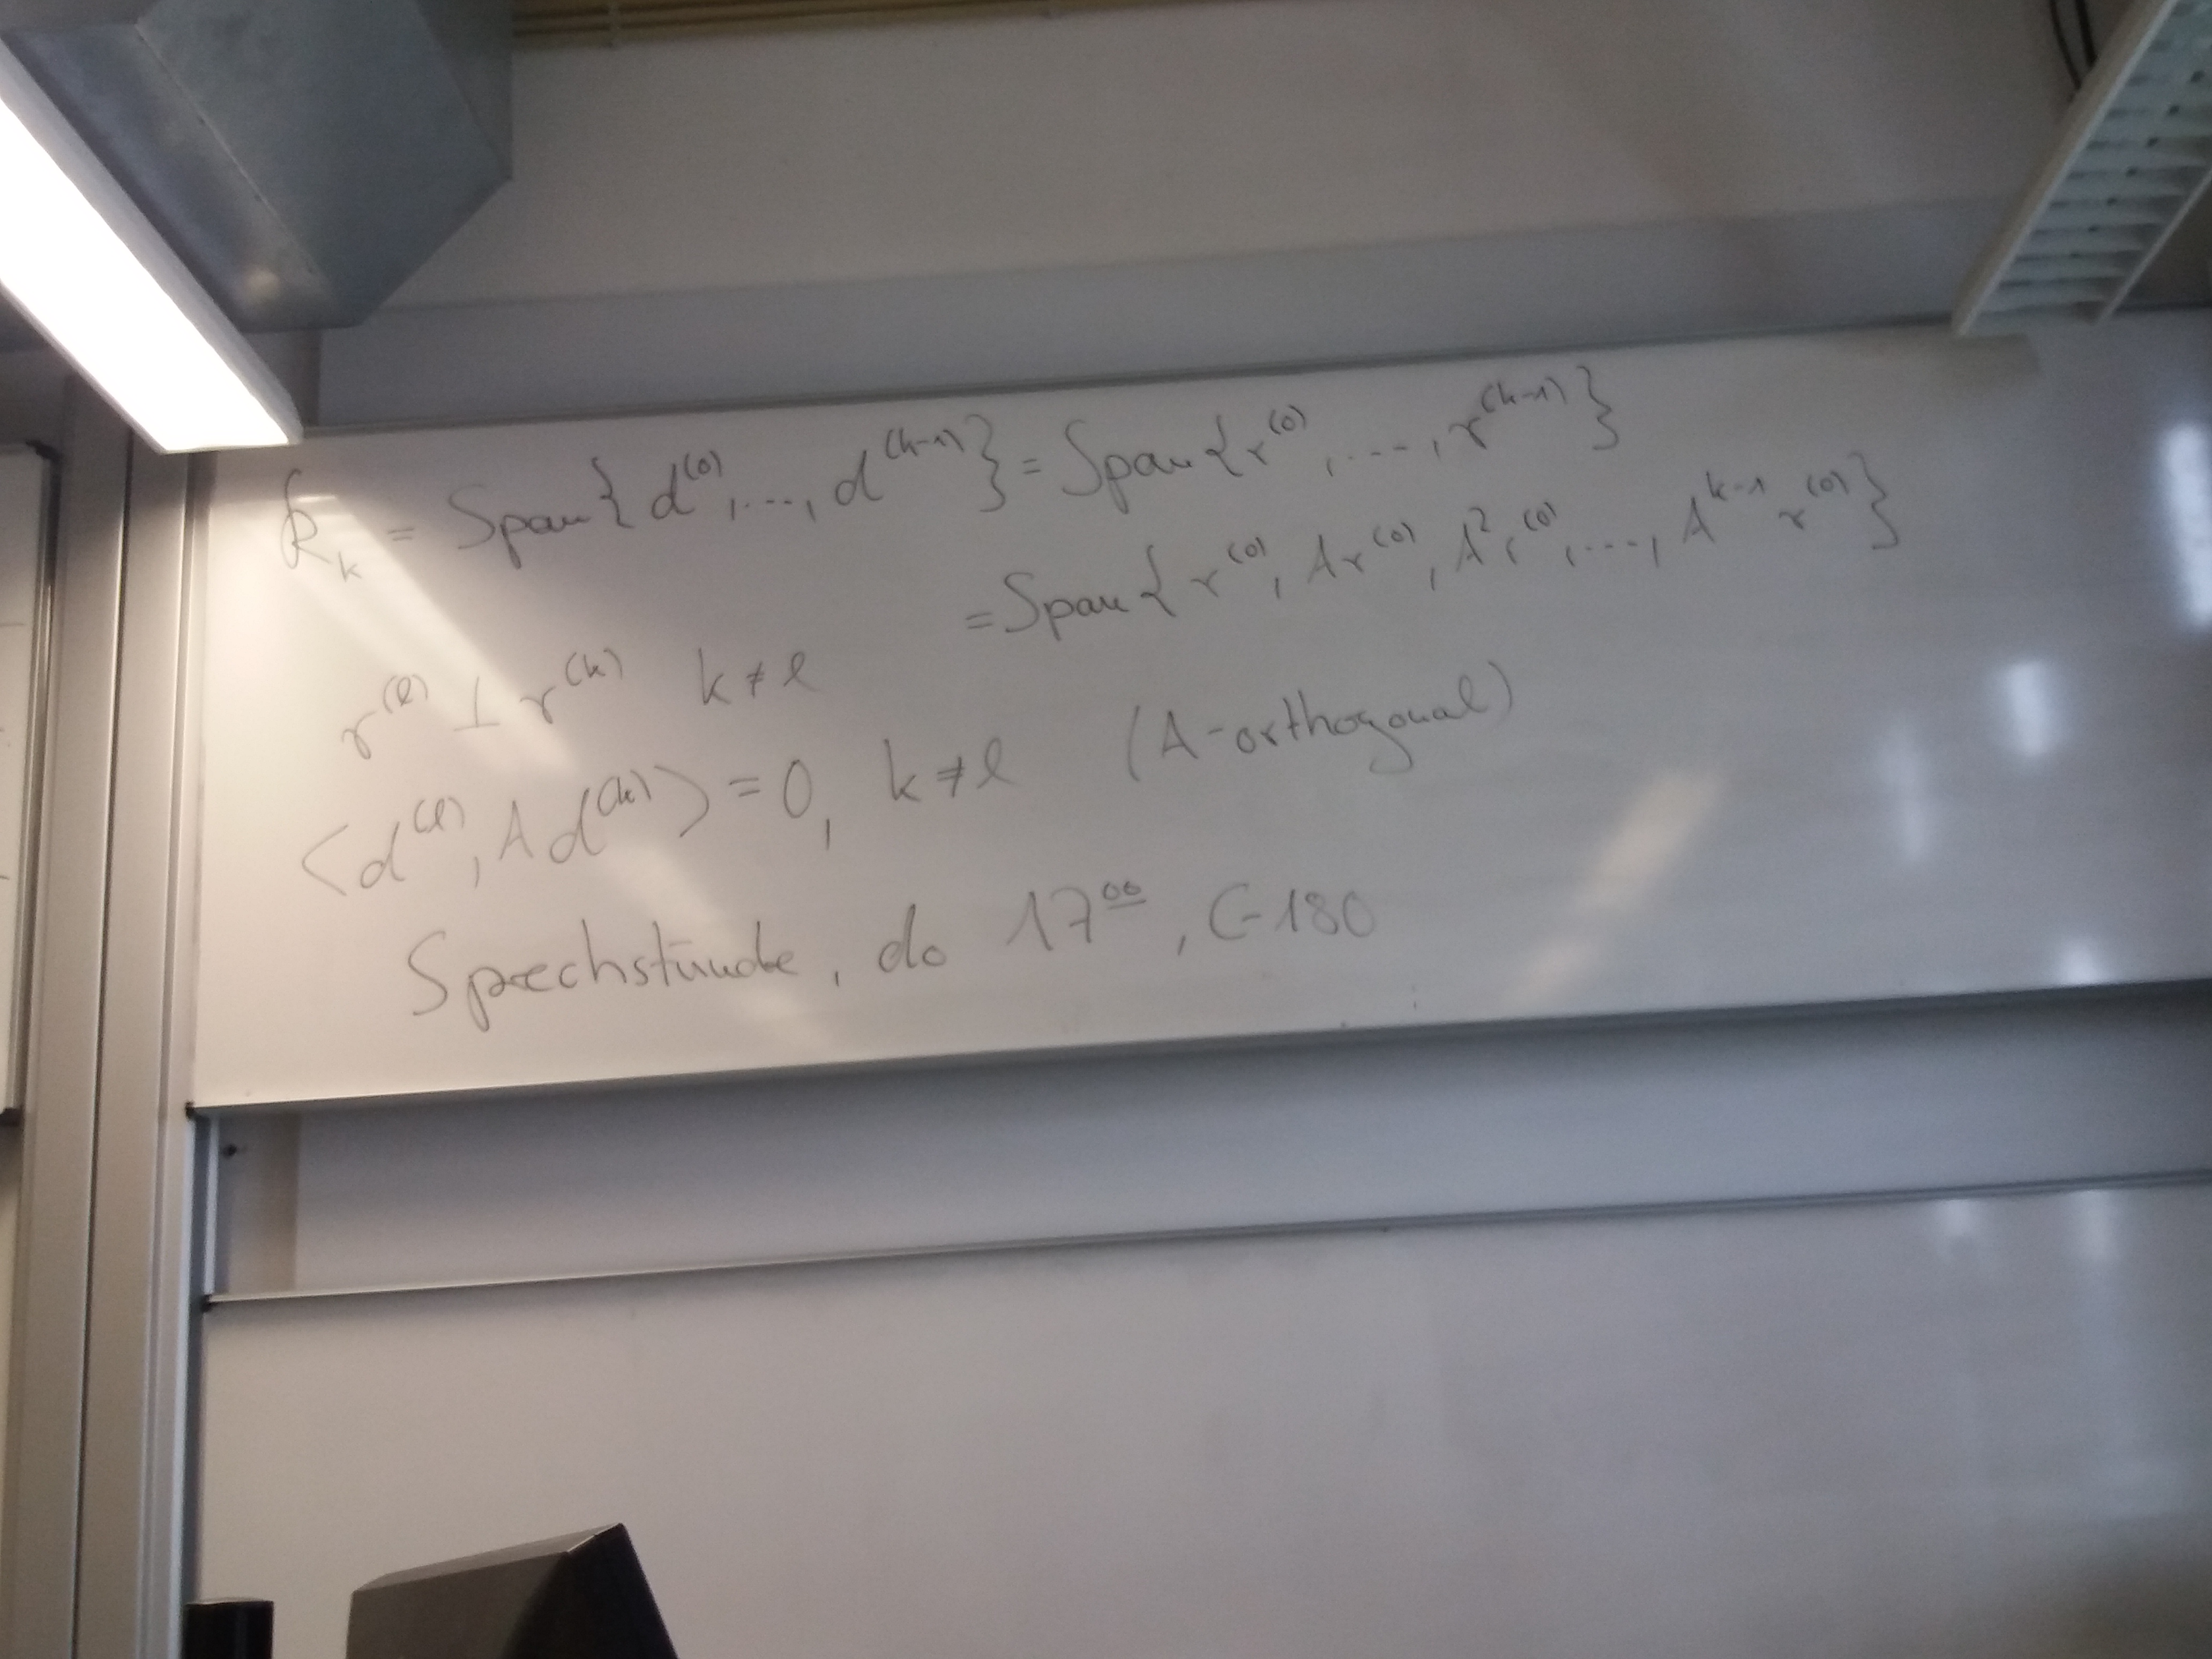 𝔎_k = Span{d^(0), ..., d^(k-1)} = Span{r^(0), ..., r^(k-1)}
= Span{r^(0), Ar^(0), A^2r^(0), ..., A^(k-1)r^(0)}
r^(ℓ) ⊥ r^(k) k ≠ ℓ
<d^(ℓ), Ad^(k)> = 0, k ≠ ℓ (A-orthogonal)
Sprechstunde, do 17^00, C-180